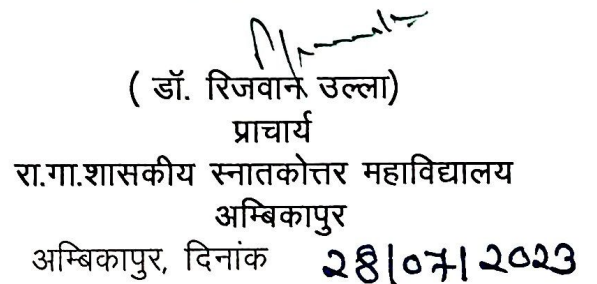 ( डॉ. रिजवान उल्ला)
प्राचार्य
रा.गा.शासकीय स्नातकोत्तर महाविद्यालय
अम्बिकापुर
अम्बिकापुर, दिनांक 28/07/2023